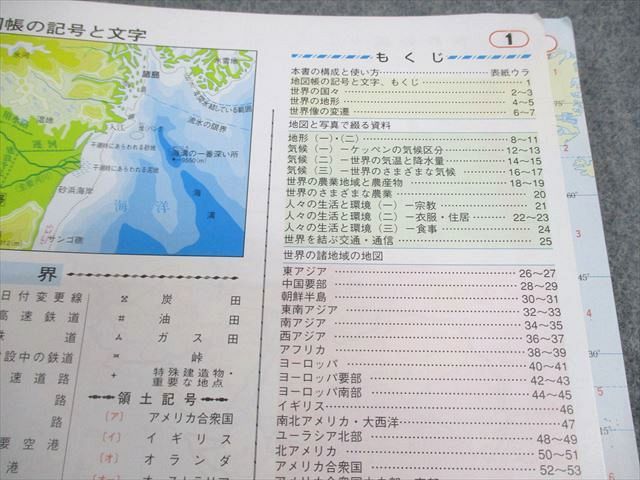 帳の記号と文字
1
氷河
氷雪地
諸島
湿地
入江
流氷の限界
干潮時にあらわれる砂地
海溝の一番深い所
干潮時にあらわれる岩地
砂浜海岸
海洋
海溝
サンゴ礁
界
日付変更線
高速鉄道
鉄道
建設中の鉄道
速道路
路
路
要空港
港
炭田
油田
ガス田
峠
特殊建造物・
重要な地点
領土記号
[ア] アメリカ合衆国
[イ] イギリス
[オ] オランダ
もくじ
本書の構成と使い方 表紙ウラ
地図帳の記号と文字、もくじ 1
世界の国々 2~3
世界の地形 4~5
世界像の変遷 6~7
地図と写真で綴る資料
地形(一)・(二) 8~11
気候(一)-ケッペンの気候区分 12~13
気候(二)-世界の気温と降水量 14~15
気候(三)-世界のさまざまな気候 16~17
世界の農業地域と農産物 18~19
世界のさまざまな農業 20
人々の生活と環境(一)-宗教 21
人々の生活と環境(二)-衣服・住居 22~23
人々の生活と環境(三)-食事 24
世界を結ぶ交通・通信 25
世界の諸地域の地図
東アジア 26~27
中国要部 28~29
朝鮮半島 30~31
東南アジア 32~33
南アジア 34~35
西アジア 36~37
アフリカ 38~39
ヨーロッパ 40~41
ヨーロッパ要部 42~43
ヨーロッパ南部 44~45
イギリス 46
南北アメリカ・大西洋 47
ユーラシア北部 48~49
北アメリカ 50~51
アメリカ合衆国 52~53